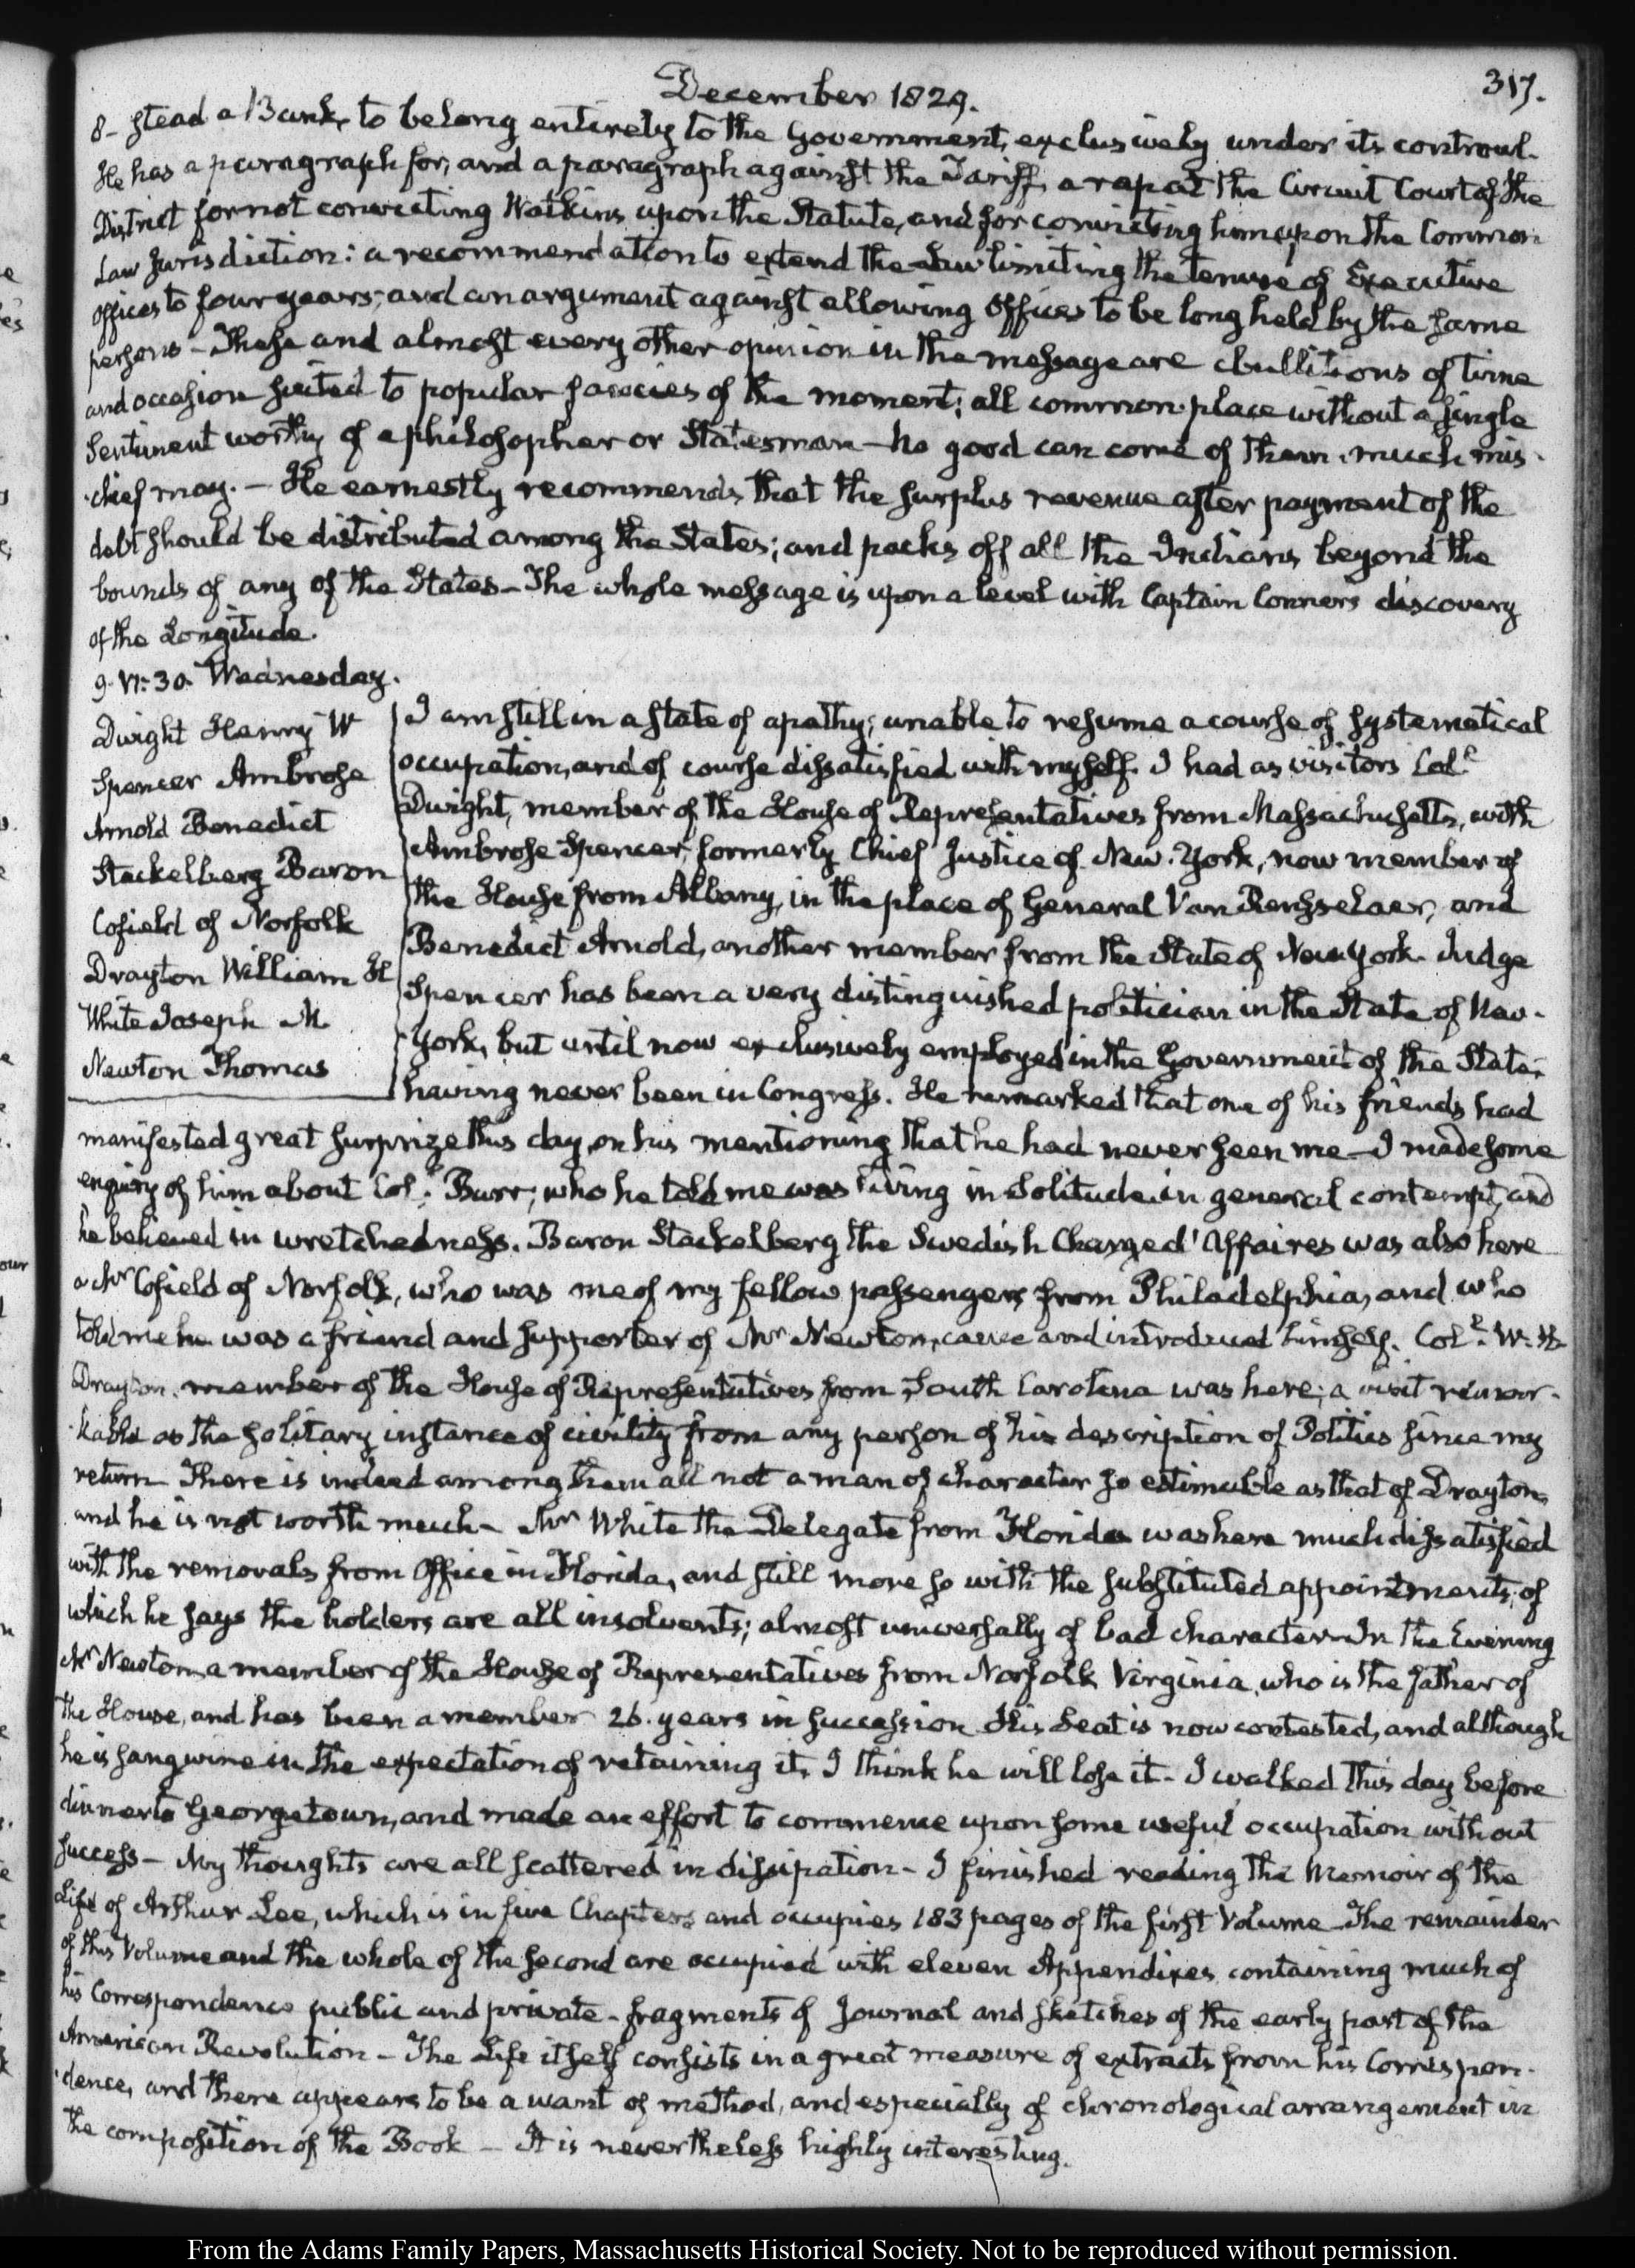 December 1829.
317.
8- stead a Bank, to belong entirely to the Government, exclusively under its controul.
He has a paragraph for, and a paragraph against the Tariff, a rap at the Circuit Court of the
District for not convicting Watkins upon the Statute, and for convicting him upon the Common
Law Jurisdiction: a recommendation to extend the Law limiting the tenure of Executive
offices to four years; and an argument against allowing offices to be long held by the same
persons - These and almost every other opinion in the message are ebullitions of time
and occasion suited to popular fancies of the moment; all common-place without a single
Sentiment worthy of a philosopher or Statesman - No good can come of them, much mis-
-chief may. - He earnestly recommends that the surplus revenue after payment of the
debt should be distributed among the States; and packs off all the Indians beyond the
bounds of any of the States - The whole message is upon a level with Captain Conners discovery
of the Longitude.
9. VI:30. Wednesday.
Dwight Henry W
Spencer Ambrose
Arnold Benedict
Stackelberg Baron
Cofield of Norfolk
Drayton William H
White Joseph M.
Newton Thomas
I am still in a state of apathy; unable to resume a course of systematical
occupation, and of course dissatisfied with myself. I had as visitors Col.l
Dwight, member of the House of Representatives from Massachusetts, with
Ambrose Spencer, formerly Chief Justice of New-York, now member of
the House from Albany, in the place of General Van Rensselaer, and
Benedict Arnold, another member from the State of New York. Judge
Spencer has been a very distinguished politician in the State of New-
-York, but until now exclusively employed in the Government of the State;
having never been in Congress. He remarked that one of his friends had
manifested great surprize this day, on his mentioning that he had never seen me - I made some
enquiry of him about Col.l Burr; who he told me was living in solitude, in general contempt, and
he believed in wretchedness. Baron Stackelberg the Swedish Charge d'Affaires was also here
a Mr Cofield of Norfolk, who was one of my fellow passengers from Philadelphia, and who
told me he was a friend and supporter of Mr Newton, came and introduced himself. Col.l W. H.
Drayton, member of the House of Representatives from South Carolina was here; a visit remar-
-kable as the solitary instance of civility from any person of his description of Politics since my
return - There is indeed among them all not a man of character so estimable as that of Drayton,
and he is not worth much - Mr White the Delegate from Florida was here much dissatisfied
with the removals from Office in Florida, and still more so with the substituted appointments; of
which he says the holders are all insolvents; almost universally of bad character - In the Evening
Mr Newton a member of the House of Representatives from Norfolk Virginia, who is the father of
the House, and has been a member 26 years in succession. His Seat is now contested, and although
he is sanguine in the expectation of retaining it, I think he will lose it - I walked this day before
dinner to Georgetown, and made an effort to commence upon some useful occupation without
success - My thoughts are all scattered in dissipation - I finished reading the Memoir of the
Life of Arthur Lee, which is in five Chapters and occupies 183 pages of the first Volume - The remainder
of this Volume and the whole of the second are occupied with eleven Appendixes, containing much of
his Correspondence public and private - fragments of Journal and sketches of the early part of the
American Revolution - The Life itself consists in a great measure of extracts from his Correspon-
-dence, and there appears to be a want of method, and especially of chronological arrangement in
the composition of the Book - It is nevertheless highly interesting.
From the Adams Family Papers, Massachusetts Historical Society. Not to be reproduced without permission.